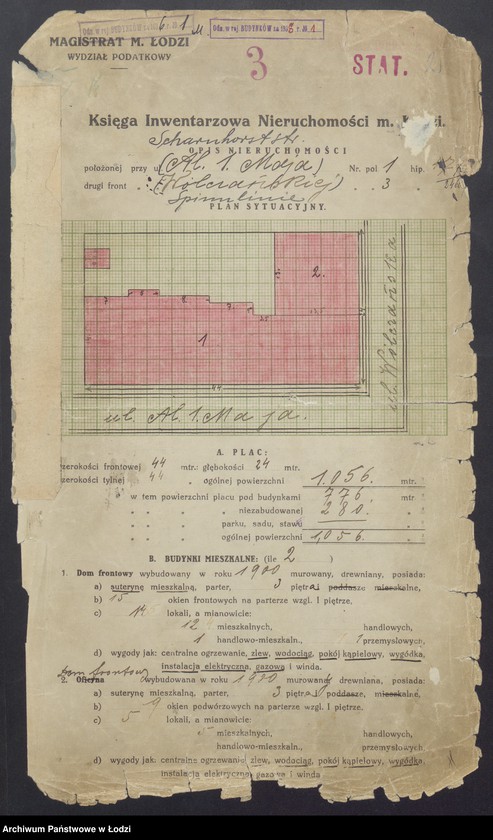 6 1
Odn. w rej. BUDYNKÓW za 193 r. № 1.
MAGISTRAT M. ŁODZI
WYDZIAŁ PODATKOWY
3
STAT.
Księga Inwentarzowa Nieruchomości m. Łodzi.
Scharnhorststr.
OPIS NIERUCHOMOŚCI
położonej przy ul. (Al. 1. Maja) Nr. pol 1 hip.
drugi front (Wólczańskiej) 3
Spinnlinie
PLAN SYTUACYJNY.
2.
1
44
ul. Wólczańska
ul. Al. 1. Maja.
A. PLAC:
szerokości frontowej 44 mtr.: głębokości 24 mtr.
szerokości tylnej 44 „ ogólnej powierzchni 1.056. mtr.
w tem powierzchni placu pod budynkami 776. mtr
„ „ „ niezabudowanej 280.
„ „ „ parku, sadu, stawu
ogólnej powierzchni 1,056.
B. BUDYNKI MIESZKALNE: (ile 2 )
1. Dom frontowy wybudowany w roku 1900 murowany, drewniany, posiada:
a) suterynę mieszkalną, parter, 3 piętra, poddasze, mieszkalne,
b) 15 okien frontowych na parterze wzgl. I piętrze,
c) 14 lokali, a mianowicie:
12 mieszkalnych, handlowych,
1 handlowo-mieszkaln., 1 przemysłowych,
d) wygody jak: centralne ogrzewanie, zlew, wodociąg, pokój kąpielowy, wygódka,
instalacja elektryczna, gazowa i winda.
dom frontowy
2. Oficyna wybudowana w roku 1900 murowany, drewniana, posiada:
a) suterynę mieszkalną, parter, 3 piętra, poddasze, mieszkalne,
b) 9 okien podwórzowych na parterze wzgl. I piętrze.
c) 5 lokali, a mianowicie:
5 mieszkalnych, handlowych,
handlowo-mieszkaln., przemysłowych.
d) wygody jak: centralne ogrzewanie, zlew, wodociąg, pokój kąpielowy, wygódka,
instalacja elektryczna, gazowa i winda
Archiwum Państwowe w Łodzi